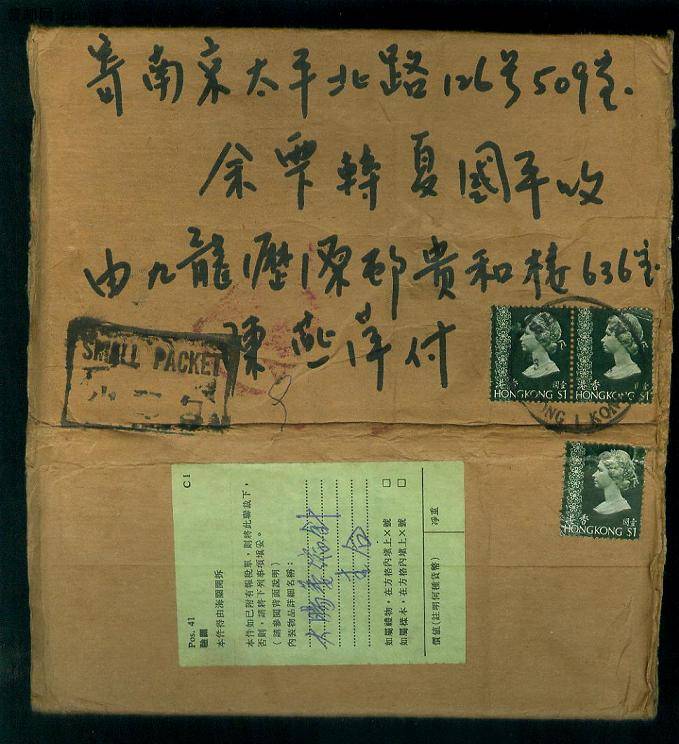 寄南京太平北路126号509室.
余雫轉夏國平收
由九龍瀝源邨貴和樓636室
陳燕萍付
SMALL PACKET
HONG KONG
香港
壹圓
HONGKONG $1
香港
壹圓
HONGKONG $1
香港
壹圓
HONGKONG $1
C 1
Pos. 41
驗關
本件得由海關開拆
本件如已附有報稅單，則將此聯裁下，
否則，請將下列事項填妥。
（請參閱背面說明）
內裝物品詳細名稱：
如屬禮物，在方格內填上×號 □
如屬樣本，在方格內填上×號 □
價值(註明何種貨幣)
淨重